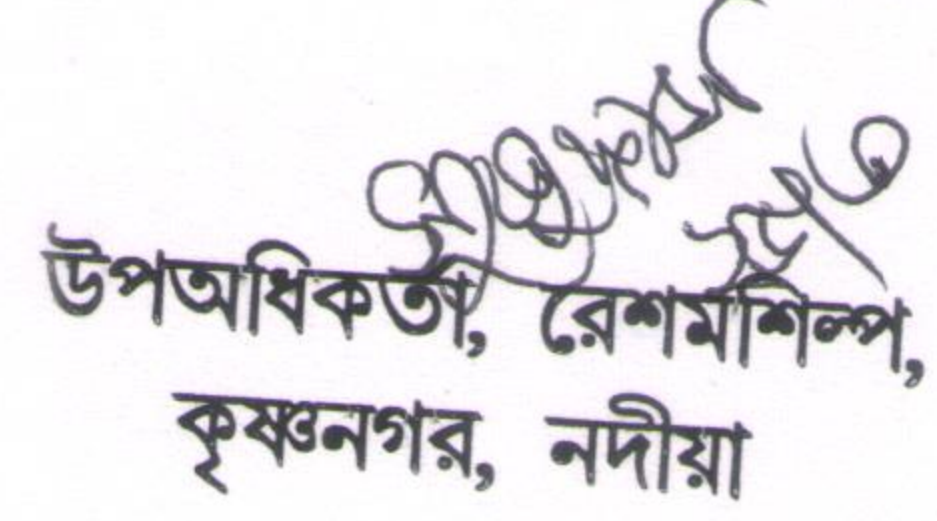 উপঅধিকর্তা, রেশমশিল্প,
কৃষ্ণনগর, নদীয়া